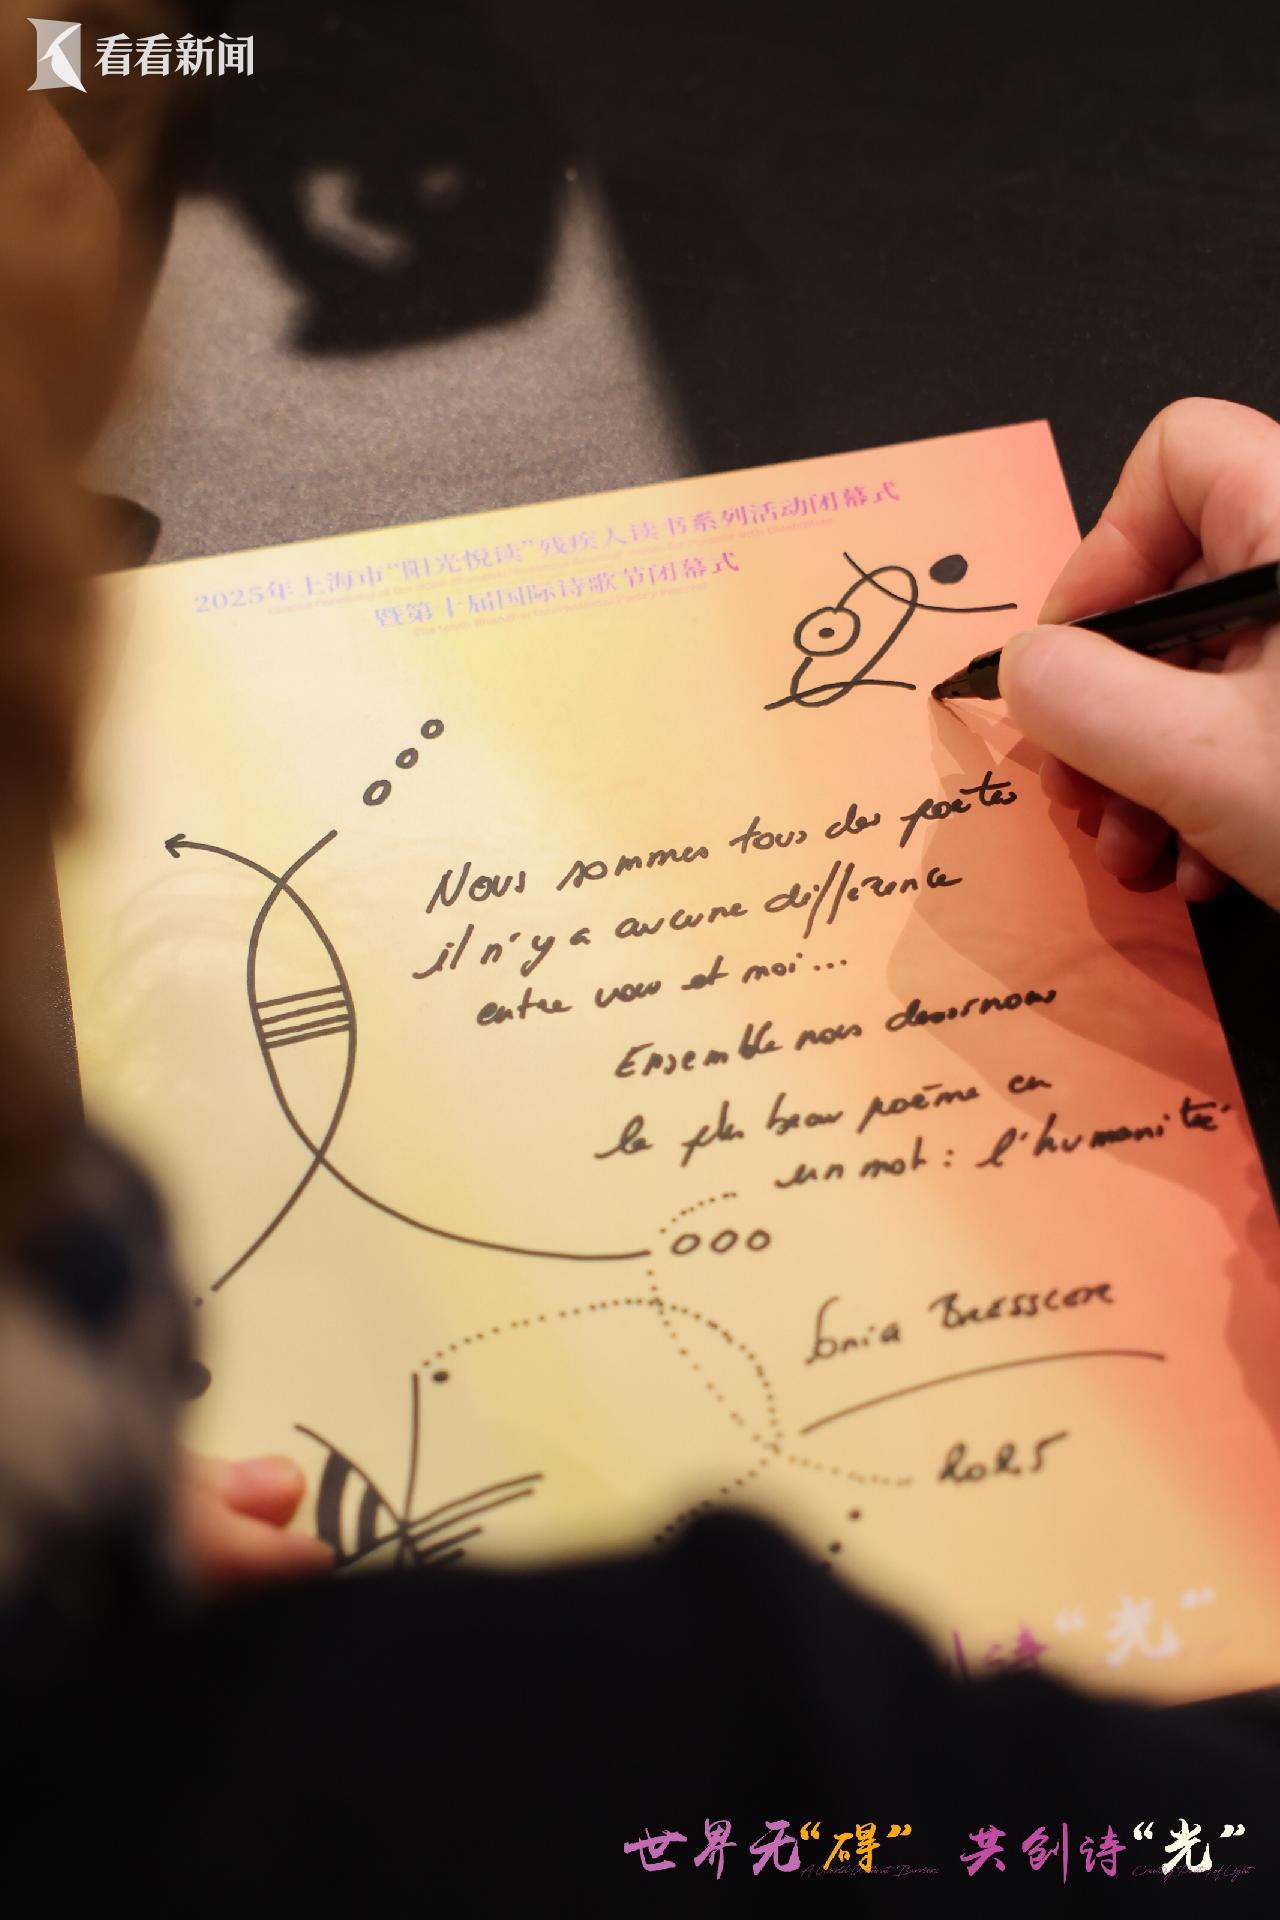 看看新闻
2025年上海市“阳光悦读”残疾人读书系列活动闭幕式
暨第十届国际诗歌节闭幕式
The 10th Shanghai International Poetry Festival
Nous sommes tous des poètes
il n'y a aucune différence
entre vous et moi...
Ensemble nous dessinons
le plus beau poème en
un mot : l'humanité
Sonia Bressler
2025
诗“光”
世界无“碍” 共创诗“光”
A World Without Barriers Creating Poetry of Light